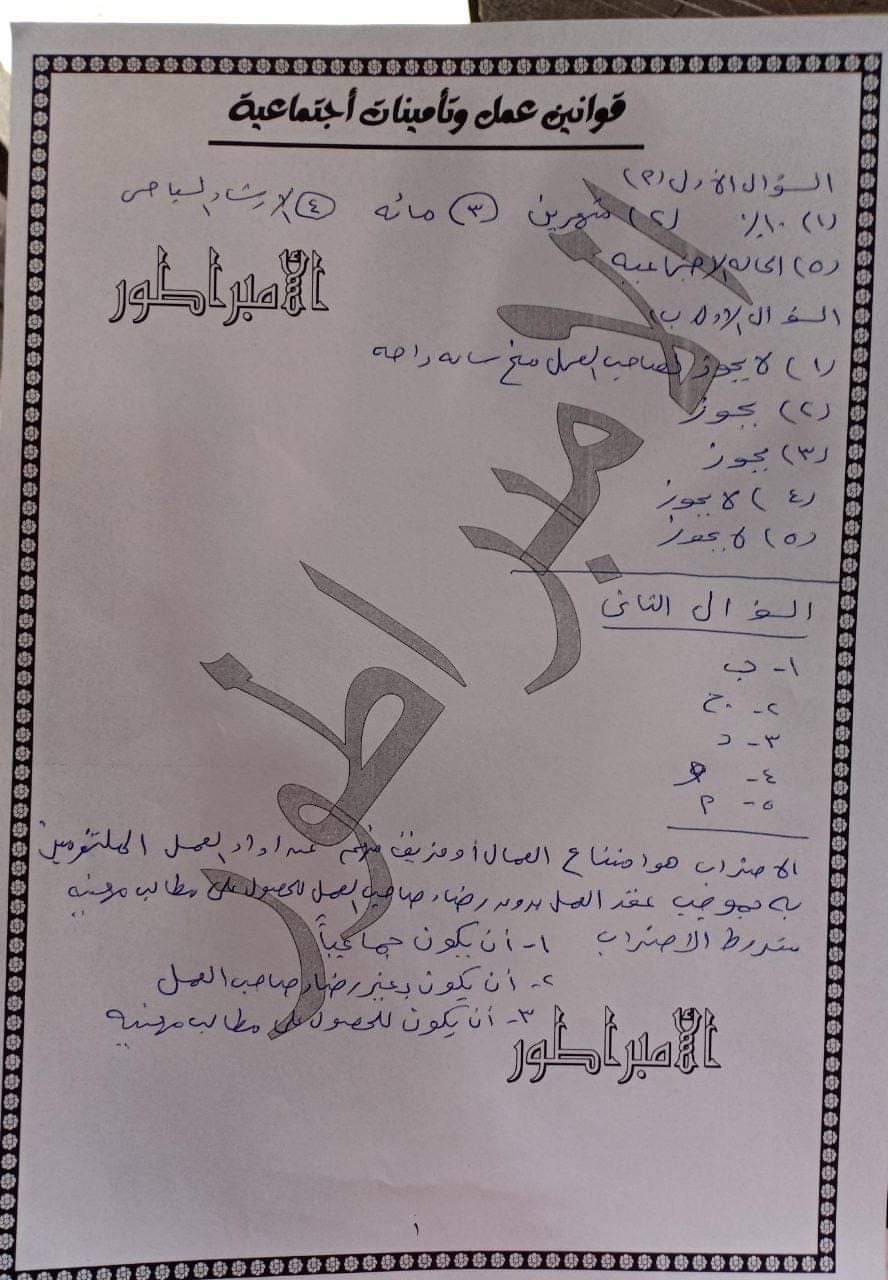 قوانين عمل وتأمينات أجتماعية
السؤال الأول (م)
(١) ١٠٪ (٢) شهرين (٣) مائه (٤) الارشاد السياحى
(٥) الحاله الاجتماعيه
الامبراطور
السؤال الاول ب)
(١) لا يجوز لصاحب العمل منح ساعه راحه
(٢) يجوز
(٣) يجوز
(٤) لا يجوز
(٥) لا يجوز
الامبراطور
السؤال الثانى
١- ب
٢- ج
٣- د
٤-
٥- م
الاضراب هو امتناع العمال أو فريق منهم عن اداء العمل الملتزمين
به بموجب عقد العمل بدون رضاء صاحب العمل للحصول على مطالب مهنيه
شروط الاضراب ١- أن يكون جماعياً
٢- أن يكون بغير رضاء صاحب العمل
٣- أن يكون للحصول على مطالب مهنيه
الامبراطور
١